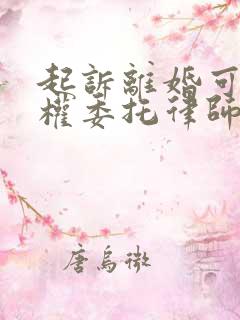 起訴離婚可
權委托律師
唐烏微